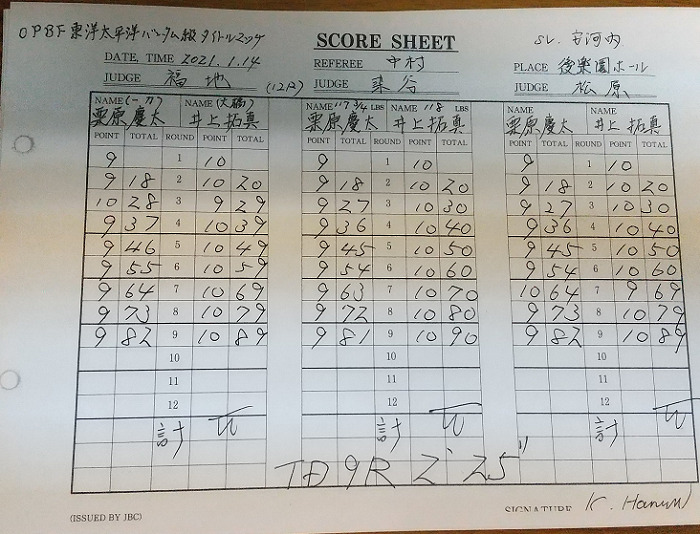 OPBF 東洋太平洋バンタム級 タイトルマッチ
SCORE SHEET
SV. 安河内
DATE, TIME 2021.1.14
REFEREE 中村
PLACE 後楽園ホール
JUDGE 福地 (12R)
JUDGE 染谷
JUDGE 松原
NAME (一力) NAME (大橋) NAME 117 3/4 LBS NAME 118 LBS NAME NAME
栗原慶太 井上拓真 栗原慶太 井上拓真 栗原慶太 井上拓真
POINT TOTAL ROUND POINT TOTAL POINT TOTAL ROUND POINT TOTAL POINT TOTAL ROUND POINT TOTAL
9 1 10 9 1 10 9 1 10
9 18 2 10 20 9 18 2 10 20 9 18 2 10 20
10 28 3 9 29 9 27 3 10 30 9 27 3 10 30
9 37 4 10 39 9 36 4 10 40 9 36 4 10 40
9 46 5 10 49 9 45 5 10 50 9 45 5 10 50
9 55 6 10 59 9 54 6 10 60 9 54 6 10 60
9 64 7 10 69 9 63 7 10 70 10 64 7 9 69
9 73 8 10 79 9 72 8 10 80 9 73 8 10 79
9 82 9 10 89 9 81 9 10 90 9 82 9 10 89
10 10 10
11 11 11
12 12 12
計 W 計 W 計 W
TD 9R 2'25"
(ISSUED BY JBC)
SIGNATURE K.